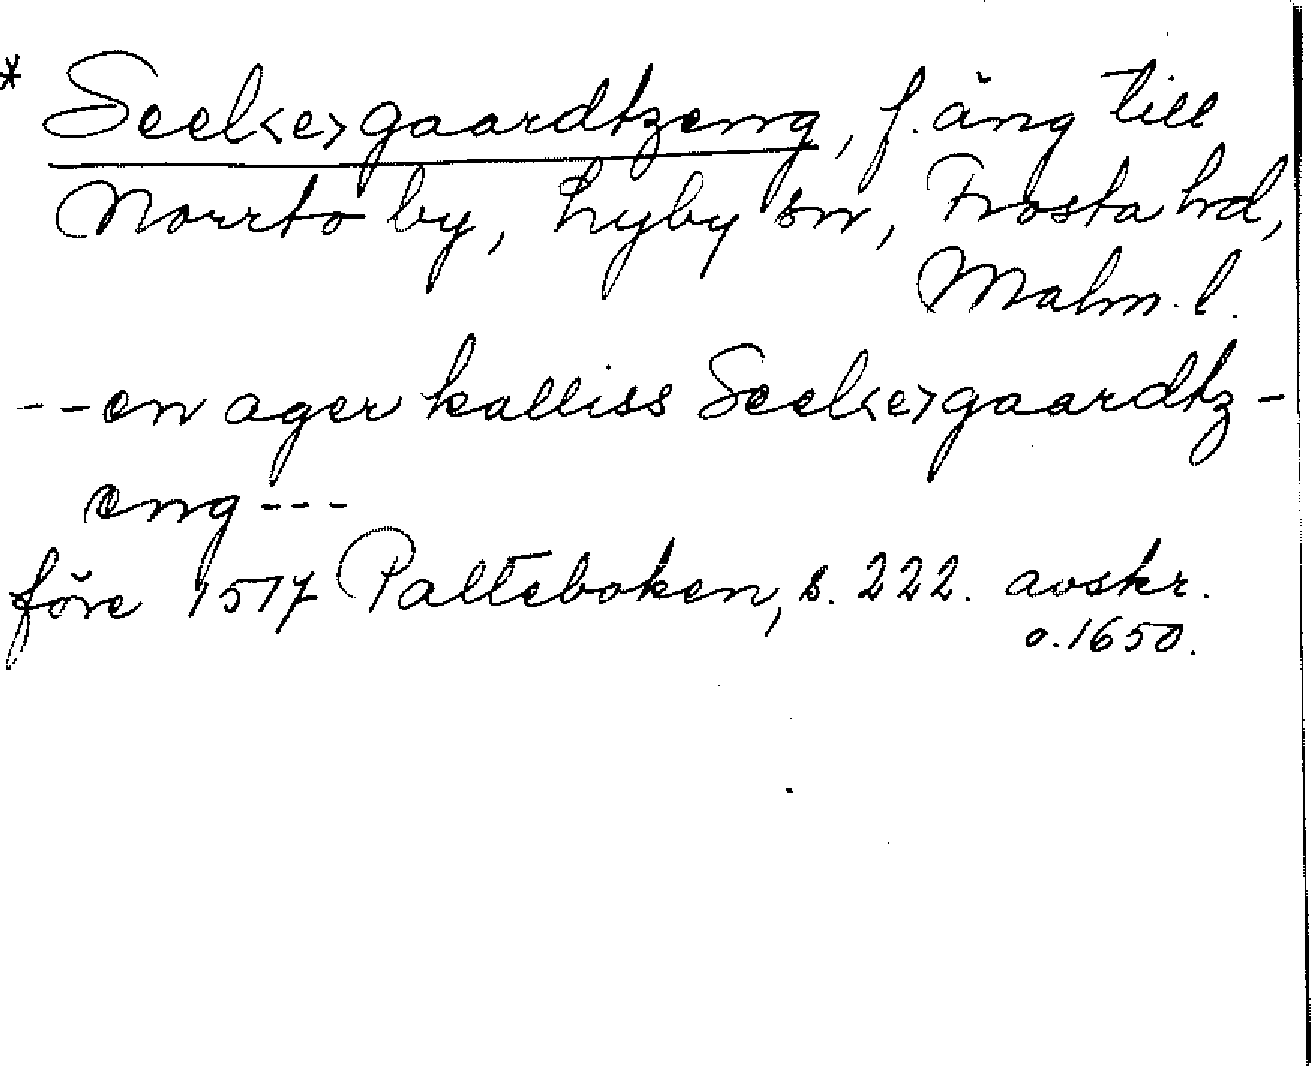 * Seel<e>gaardtzeng, f. äng till
Norrto by, Lyby sn, Frosta hd,
Malm. l.
--en ager kalliss Seel<e>gaardtz-
eng---
före 1517 Palteboken, s. 222. avskr.
o. 1650.